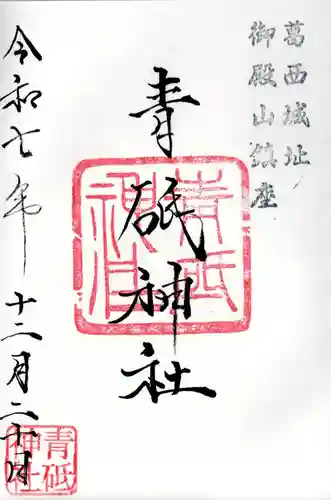 葛西城址
御殿山鎮座
青砥神社
青砥
神社
令和七年十二月二十日
青砥
神社